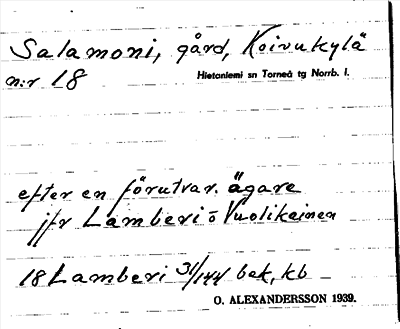 Salamoni, gård, Koivukylä
n:r 18
Hietaniemi sn Torneå tg Norrb. l.
efter en förutvar. ägare
jfr Lamberi o Vuolikainen
18 Lamberi 31/144 bak, kb
O. ALEXANDERSSON 1939.